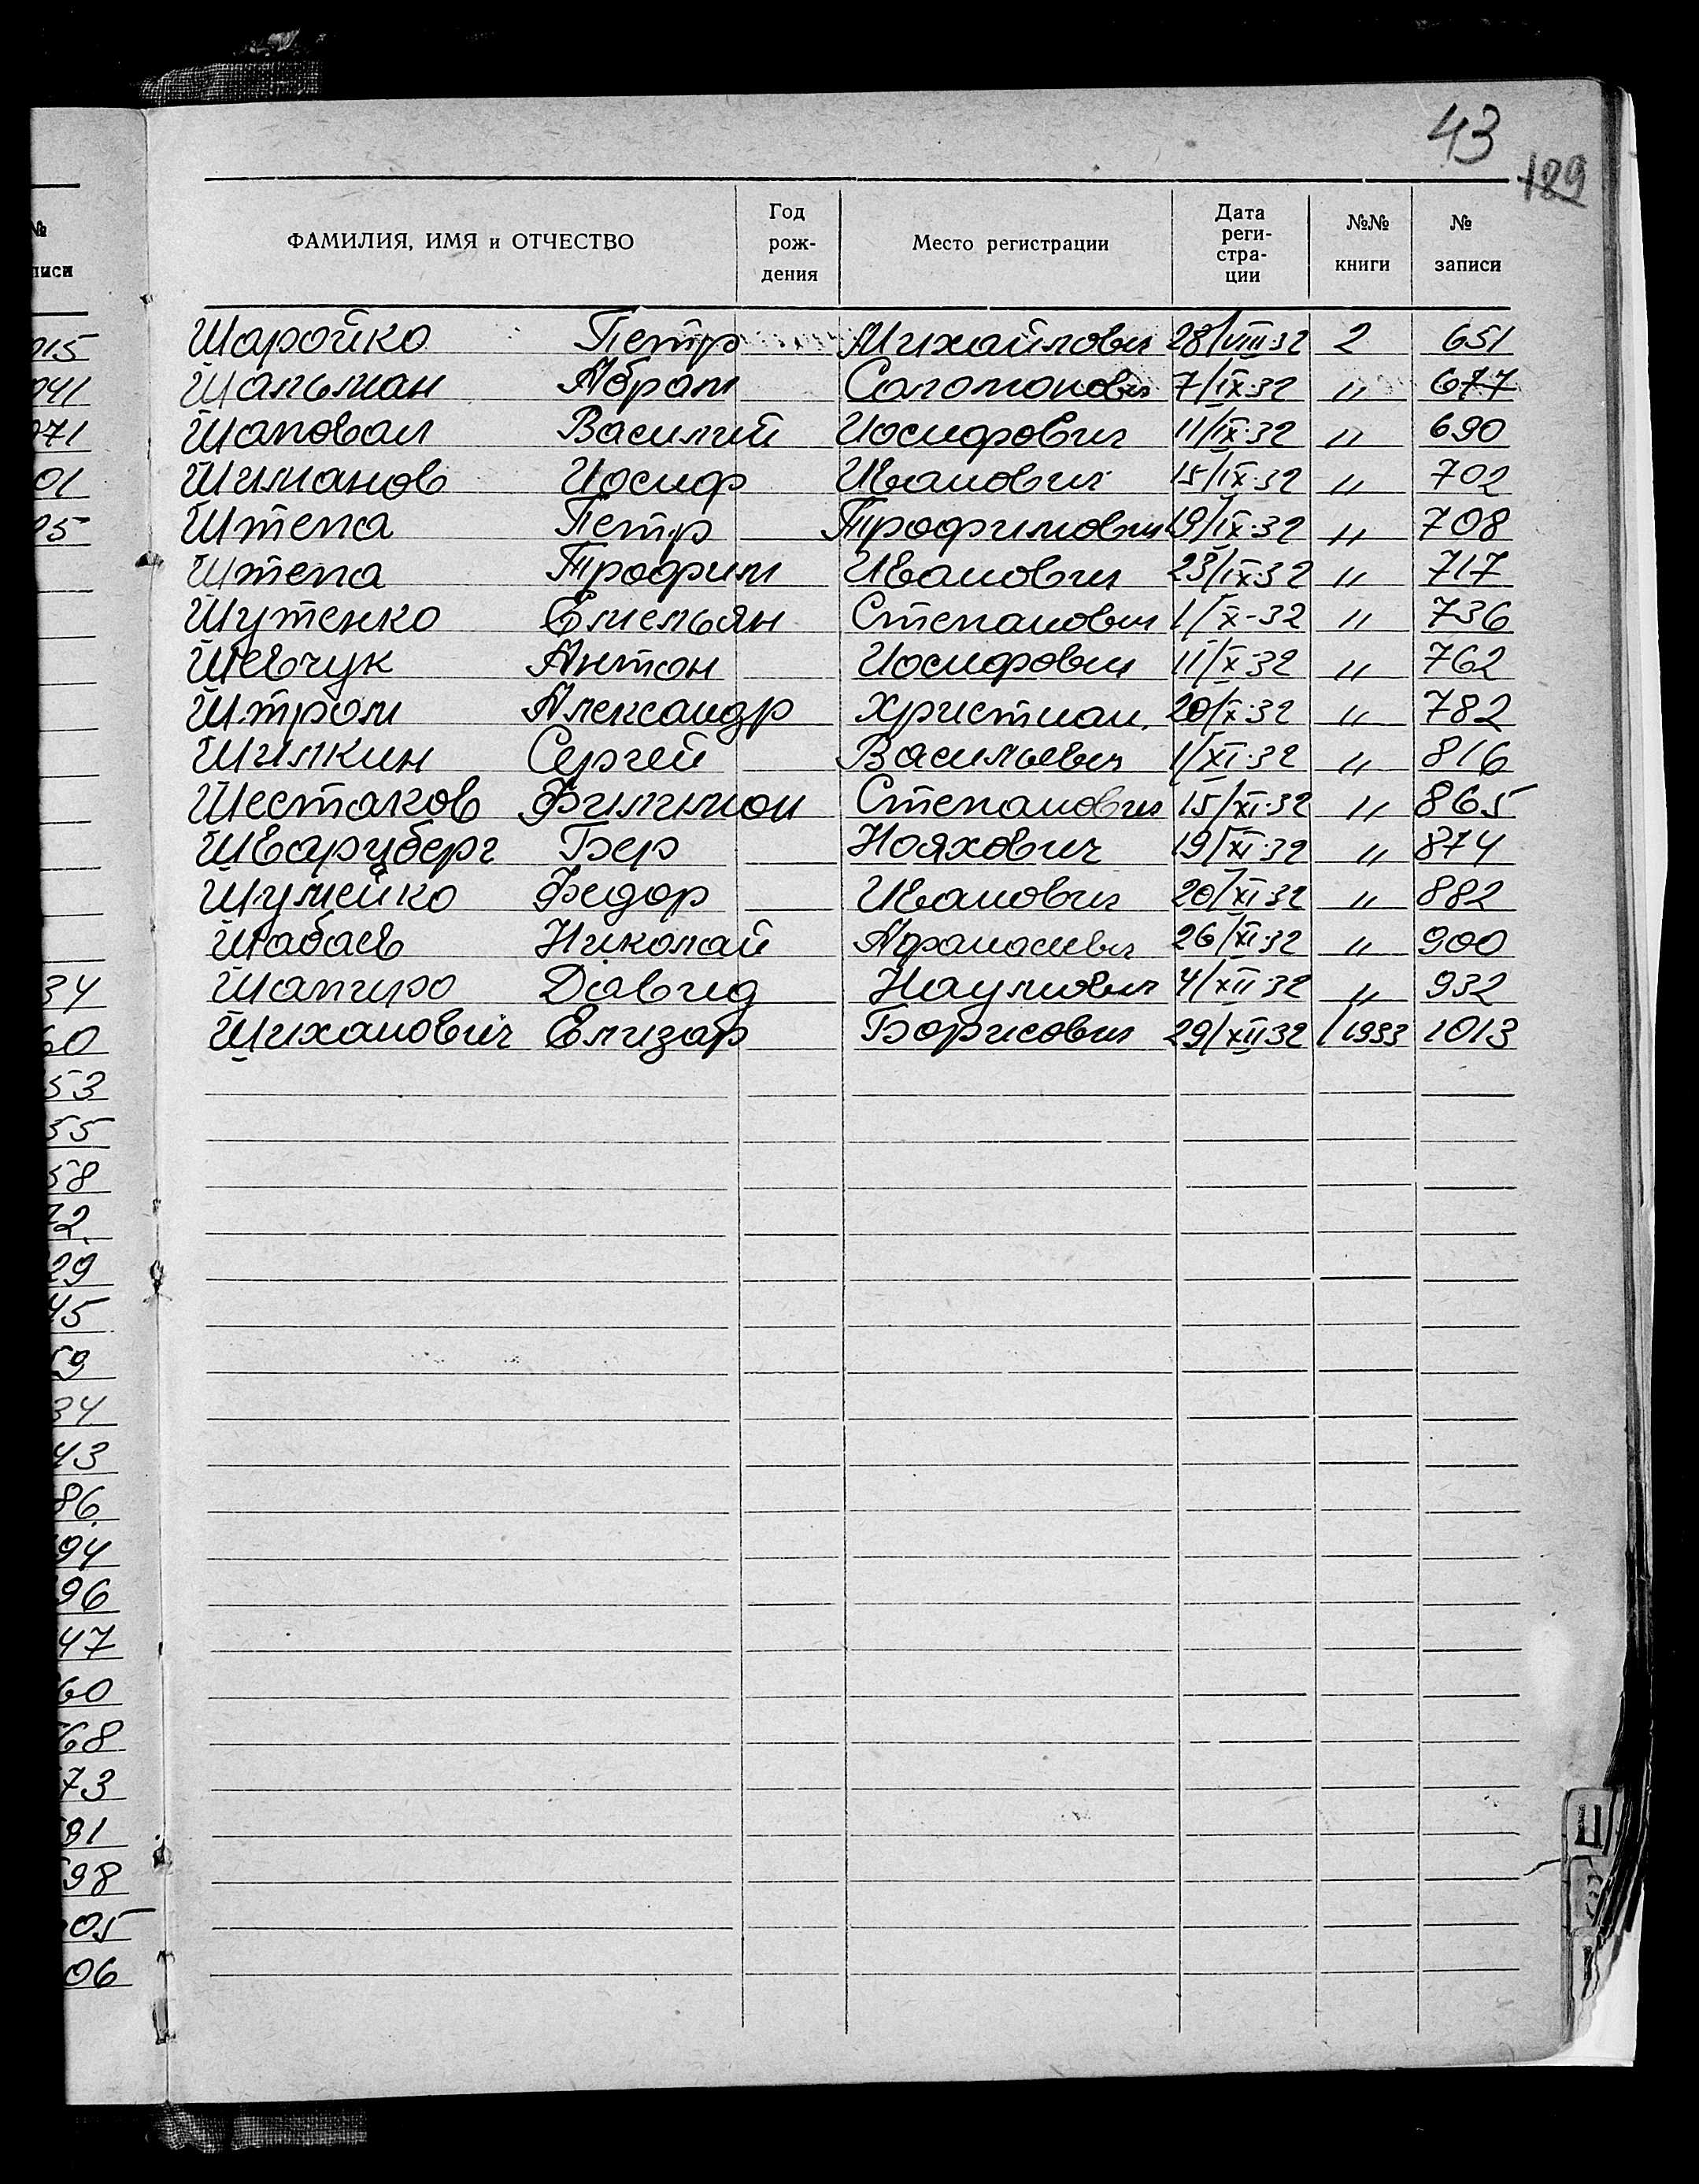 43
189
ФАМИЛИЯ, ИМЯ и ОТЧЕСТВО | Год рож-дения | Место регистрации | Дата реги-стра-ции | №№ книги | № записи
Шаройко Петр Михайлович 28/VIII-32 2 651
Шальман Абрам Соломонович 7/IX-32 " 677
Шаповал Василий Иосифович 11/IX-32 " 690
Шиманов Иосиф Иванович 15/IX-32 " 702
Штепа Петр Трофимович 19/IX-32 " 708
Штепа Трофим Иванович 23/IX-32 " 717
Шутенко Емельян Степанович 1/X-32 " 736
Шевчук Антон Иосифович 11/X-32 " 762
Штром Александр Христиан. 20/X-32 " 782
Шилкин Сергей Васильевич 1/XI-32 " 816
Шестаков Филимон Степанович 15/XI-32 " 865
Шварцберг Бер Нояхович 19/XI-32 " 874
Шумейко Федор Иванович 20/XI-32 " 882
Шабаев Николай Афанасьевич 26/XI-32 " 900
Шапиро Давид Наумович 4/XII-32 " 932
Шиханович Елизар Борисович 29/XII-32 1/1933 1013
№
писи
015
041
071
01
95
34
60
53
55
58
12
29
45
59
34
43
86
94
96
47
60
68
73
91
98
05
06
Ш